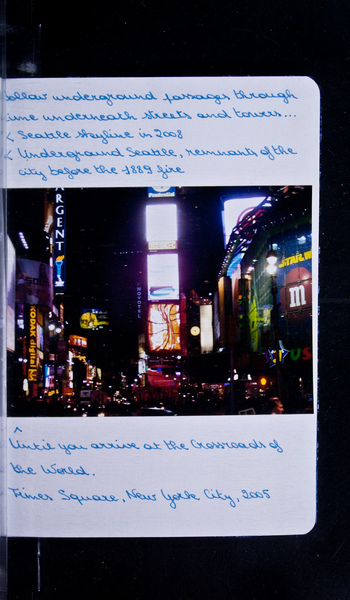 follow underground passages through
time underneath streets and towers...
< Seattle skyline in 2008
< Underground Seattle, remnants of the
city before the 1889 fire
Prudential
ARGENT
NOVOTEL
STAR W
m
KODAK digital
US
^
Until you arrive at the Crossroads of
the World.
Times Square, New York City, 2005